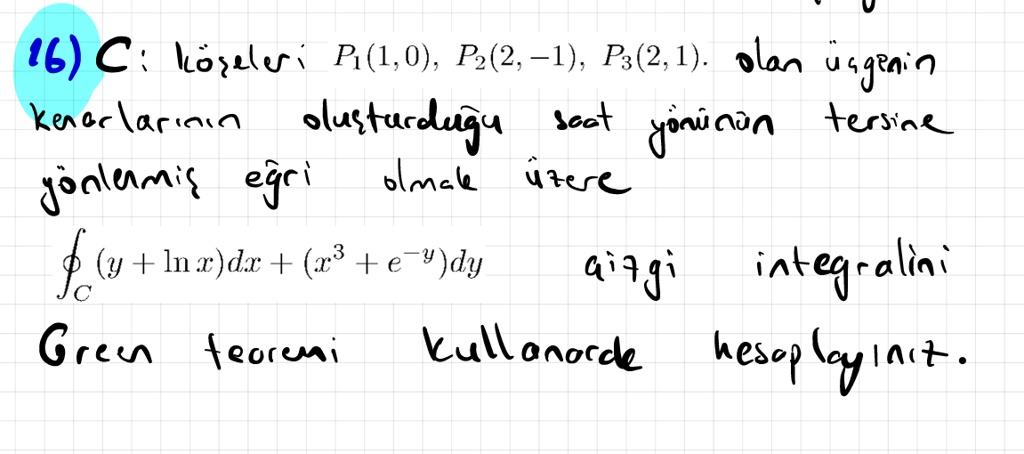 16) C: köşeleri P₁(1,0), P₂(2,−1), P₃(2,1). olan üçgenin
kenarlarının oluşturduğu saat yönünün tersine
yönlenmiş eğri olmak üzere
∮_C (y + ln x)dx + (x³ + e^{−y})dy çizgi integralini
Green teoremi kullanarak hesaplayınız.